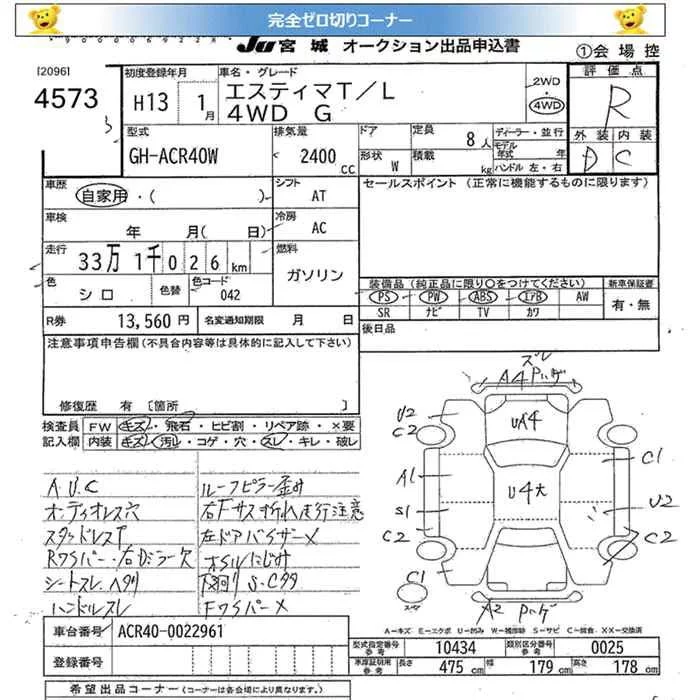 完全ゼロ切りコーナー
JU宮城 オークション出品申込書
①会場控
[2096]
4573
初度登録年月
H13 1月
車名・グレード
エスティマT/L
4WD G
2WD
4WD
評価点
R
外装 内装
D C
型式
GH-ACR40W
排気量
2400cc
ドア
定員
8人
形状
W
積載
kg
ディーラー・並行
モデル年式 年
ハンドル 左・右
車歴
自家用・( )
シフト
AT
セールスポイント (正常に機能するものに限ります)
車検
年 月( 日)
冷房
AC
走行
33万1千026km
燃料
ガソリン
色
シロ
色替
色コード
042
装備品(純正品に限り○をつけてください)
新車保証書
PS PW ABS AW
SR ナビ TV カワ
有・無
R券 13,560円
名変通知期限 月 日
後日品
注意事項申告欄(不具合内容等は具体的に記入して下さい)
修復歴 有 〔箇所
検査員記入欄
FW キズ・飛石・ヒビ割・リペア跡・×要
内装 キズ・汚レ・コゲ・穴・スレ・キレ・破レ
A.U.C
オーディオレス穴
スタッドレスT
Rワイパー・右Dミラー欠
シートスレ ヘタリ
ハンドルスレ
ルーフピラー歪み
右Fサス折れ走行注意
左ドアバイザー×
オイルにじみ
下廻り S.Cララ
Fワイパー×
ズレ
A4 Pハゲ
U2
C2
UA4
A1
C1
S1
U4大
U2
C2
C2
C1
A2 Pハゲ
A=キズ E=エクボ U=凹み W=補修跡 S=サビ C=腐食 XX=交換済
車台番号 ACR40-0022961
登録番号
型式指定番号 参考 10434
類別区分番号 参考 0025
車庫証明用 参考 長さ 475cm 幅 179cm 高さ 178cm
希望出品コーナー(コーナーは各会場により異なります。)